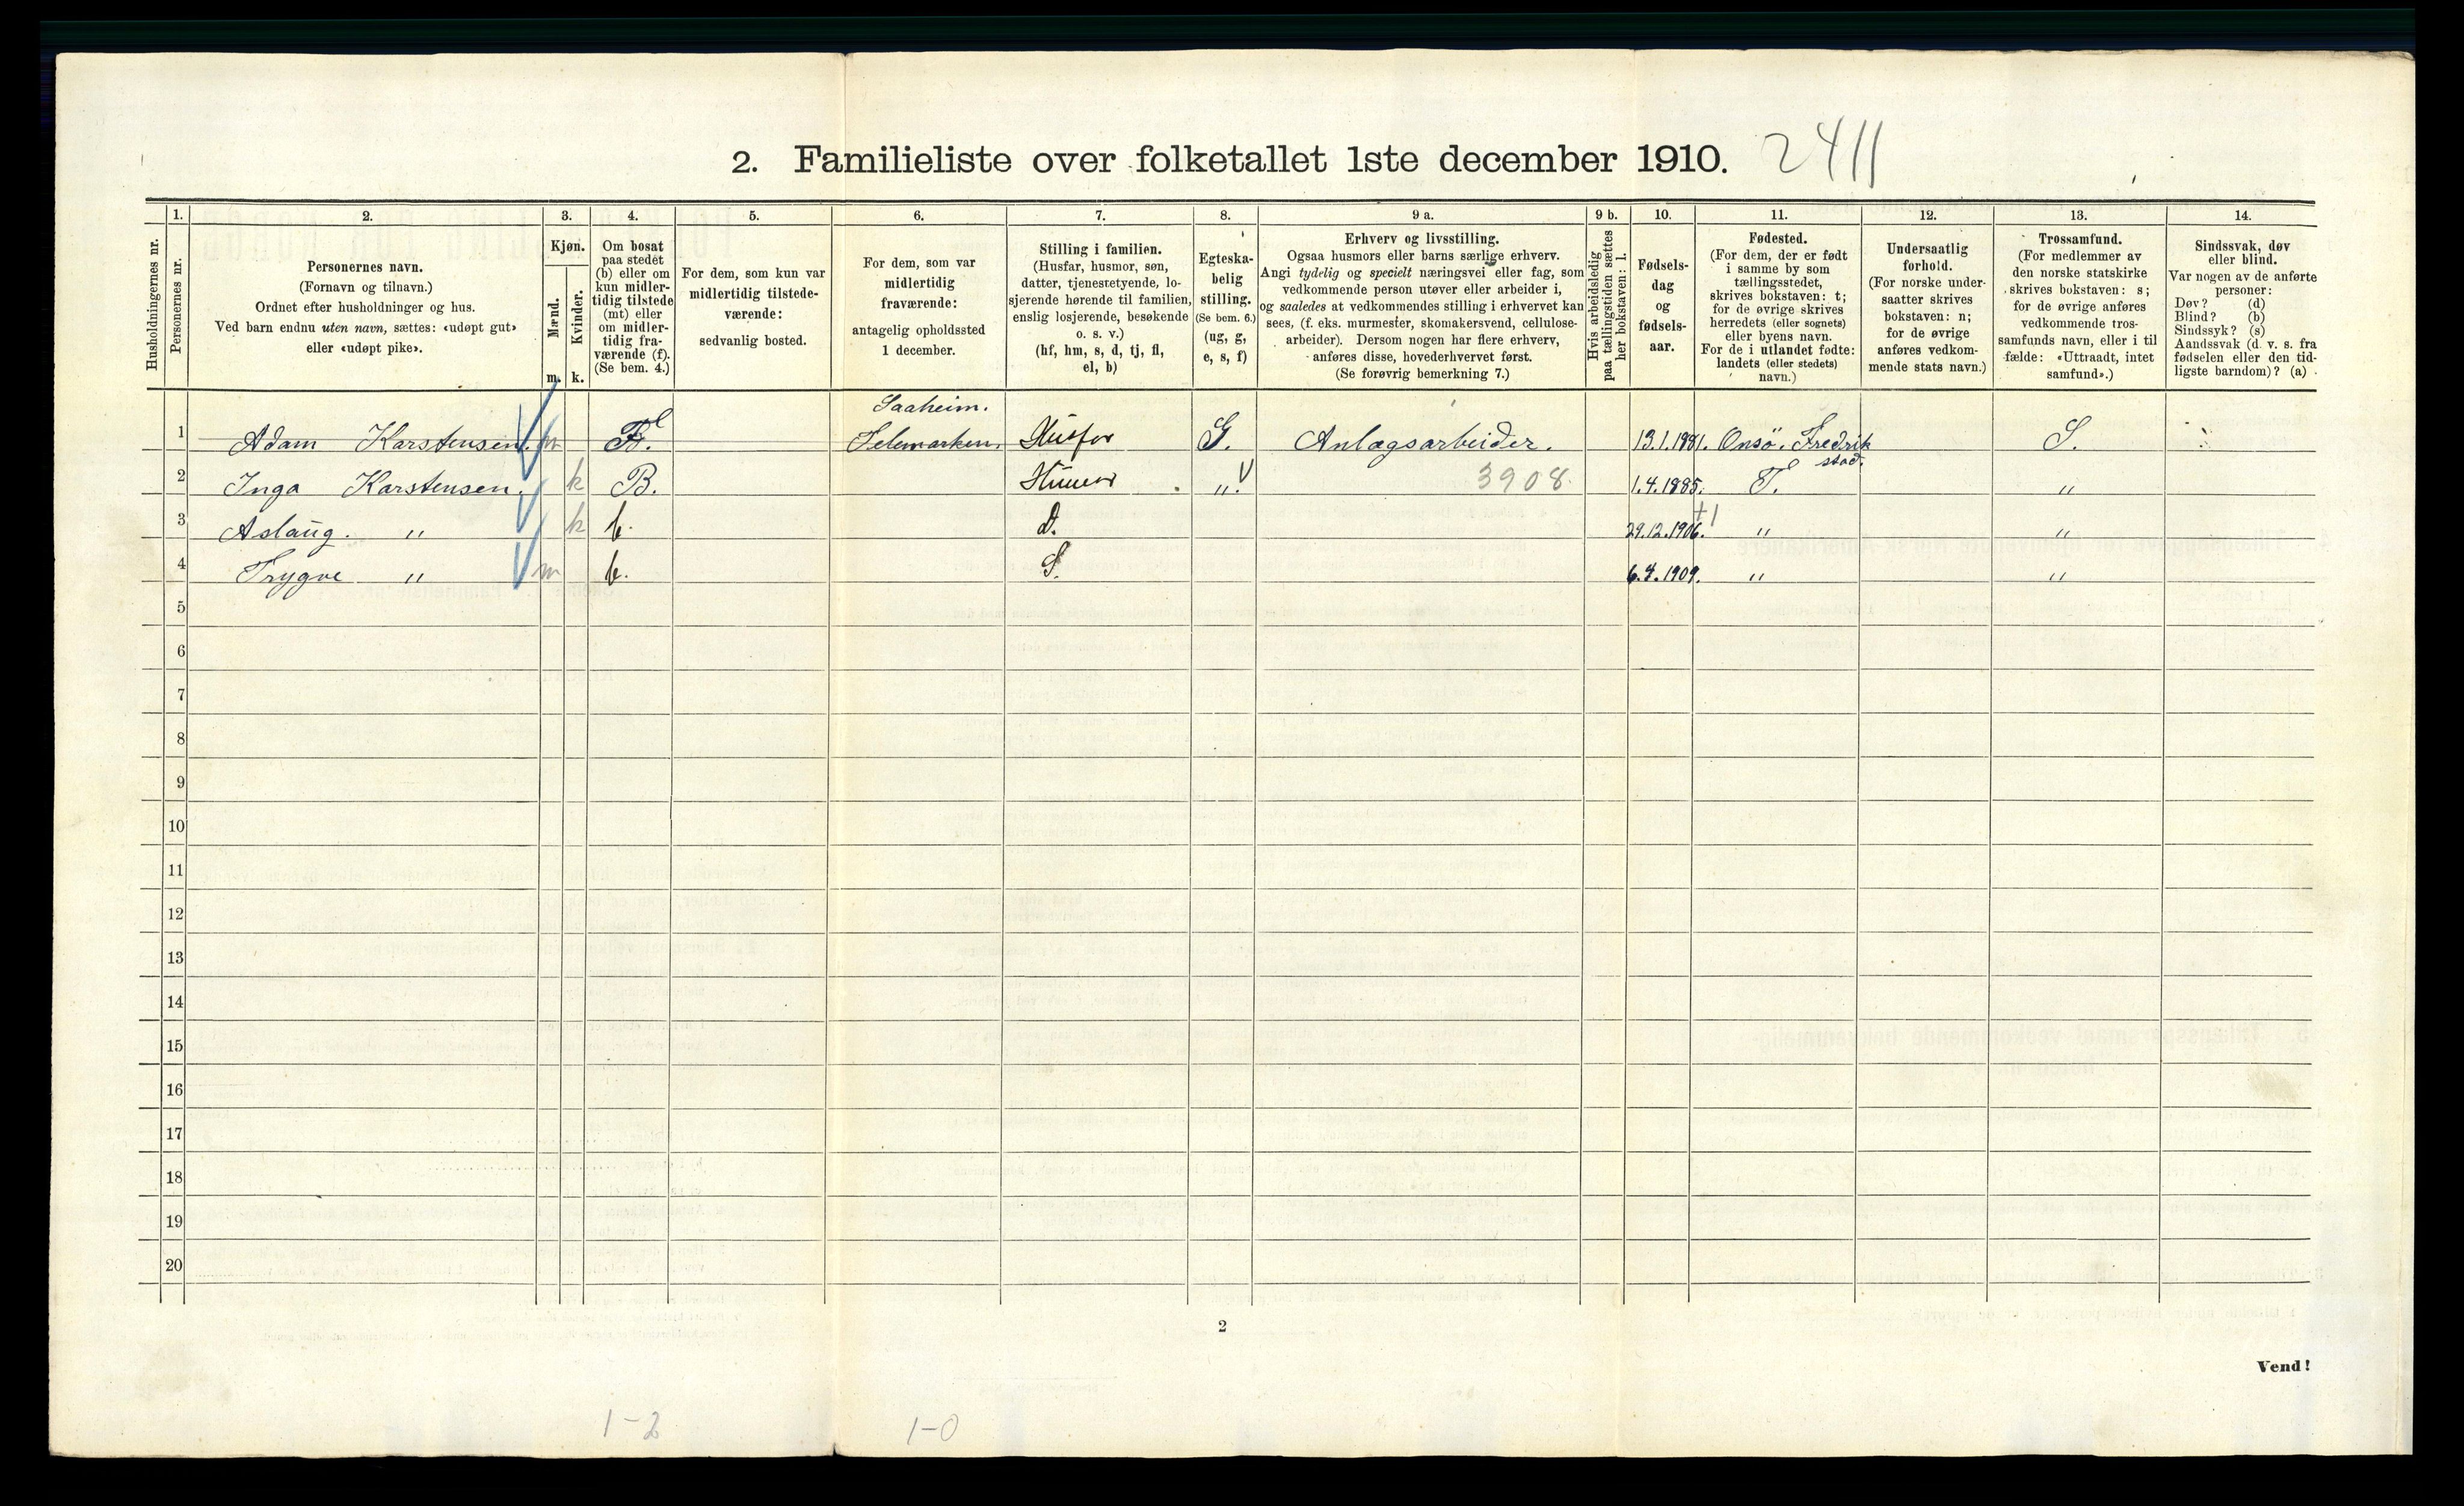 2. Familieliste over folketallet 1ste december 1910. 2411
Husholdningernes nr.
1.
Personernes nr.
2.
Personernes navn.
(Fornavn og tilnavn.)
Ordnet efter husholdninger og hus.
Ved barn endnu uten navn, sættes: «udøpt gut»
eller «udøpt pike».
3.
Kjøn.
Mænd.
m.
Kvinder.
k.
4.
Om bosat
paa stedet
(b) eller om
kun midler-
tidig tilstede
(mt) eller
om midler-
tidig fra-
værende (f).
(Se bem. 4.)
5.
For dem, som kun var
midlertidig tilstede-
værende:
sedvanlig bosted.
6.
For dem, som var
midlertidig
fraværende:
antagelig opholdssted
1 december.
7.
Stilling i familien.
(Husfar, husmor, søn,
datter, tjenestetyende, lo-
sjerende hørende til familien,
enslig losjerende, besøkende
o. s. v.)
(hf, hm, s, d, tj, fl,
el, b)
8.
Egteska-
belig
stilling.
(Se bem. 6.)
(ug, g,
e, s, f)
9 a.
Erhverv og livsstilling.
Ogsaa husmors eller barns særlige erhverv.
Angi tydelig og specielt næringsvei eller fag, som
vedkommende person utøver eller arbeider i,
og saaledes at vedkommendes stilling i erhvervet kan
sees, (f. eks. murmester, skomakersvend, cellulose-
arbeider). Dersom nogen har flere erhverv,
anføres disse, hovederhvervet først.
(Se forøvrig bemerkning 7.)
9 b.
Hvis arbeidsledig
paa tællingstiden sættes
her bokstaven: l.
10.
Fødsels-
dag
og
fødsels-
aar.
11.
Fødested.
(For dem, der er født
i samme by som
tællingsstedet,
skrives bokstaven: t;
for de øvrige skrives
herredets (eller sognets)
eller byens navn.
For de i utlandet fødte:
landets (eller stedets)
navn.)
12.
Undersaatlig
forhold.
(For norske under-
saatter skrives
bokstaven: n;
for de øvrige
anføres vedkom-
mende stats navn.)
13.
Trossamfund.
(For medlemmer av
den norske statskirke
skrives bokstaven: s;
for de øvrige anføres
vedkommende tros-
samfunds navn, eller i til-
fælde: «Uttraadt, intet
samfund».)
14.
Sindssvak, døv
eller blind.
Var nogen av de anførte
personer:
Døv? (d)
Blind? (b)
Sindssyk? (s)
Aandssvak (d. v. s. fra
fødselen eller den tid-
ligste barndom)? (a)
Saaheim.
1 Adam Karstensen. m F. Telemarken. Husfar G. Anlægsarbeider. 13.1.1881. Onsö. Fredrik
stad.
2 Inga Karstensen. k B. Husmor ". 3908. 1.4.1885. T. "
3 Aslaug. " k b. D. 29.12.1906. +1 " "
4 Trygve " m b. S. 6.4.1909. " "
5
6
7
8
9
10
11
12
13
14
15
16
17
18
19
20
2
Vend!
1-2 1-0